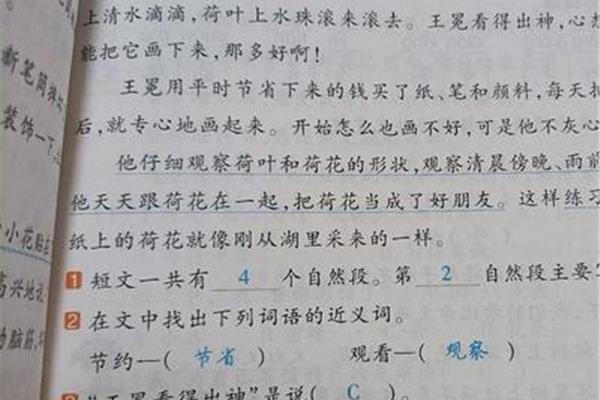 上清水滴滴，荷叶上水珠滚来滚去。王冕看得出神，心想
能把它画下来，那多好啊！
王冕用平时节省下来的钱买了纸、笔和颜料，每天
后，就专心地画起来。开始怎么也画不好，可是他不灰心
他仔细观察荷叶和荷花的形状，观察清晨傍晚、雨前
他天天跟荷花在一起，把荷花当成了好朋友。这样练习
纸上的荷花就像刚从湖里采来的一样。
1 短文一共有 4 个自然段。第 2 自然段主要
2 在文中找出下列词语的近义词。
节约—( 节省 ) 观看—( 观察 )
"王冕看得出神"是说( C )。
装饰一下
小花
高兴地说
动脑筋